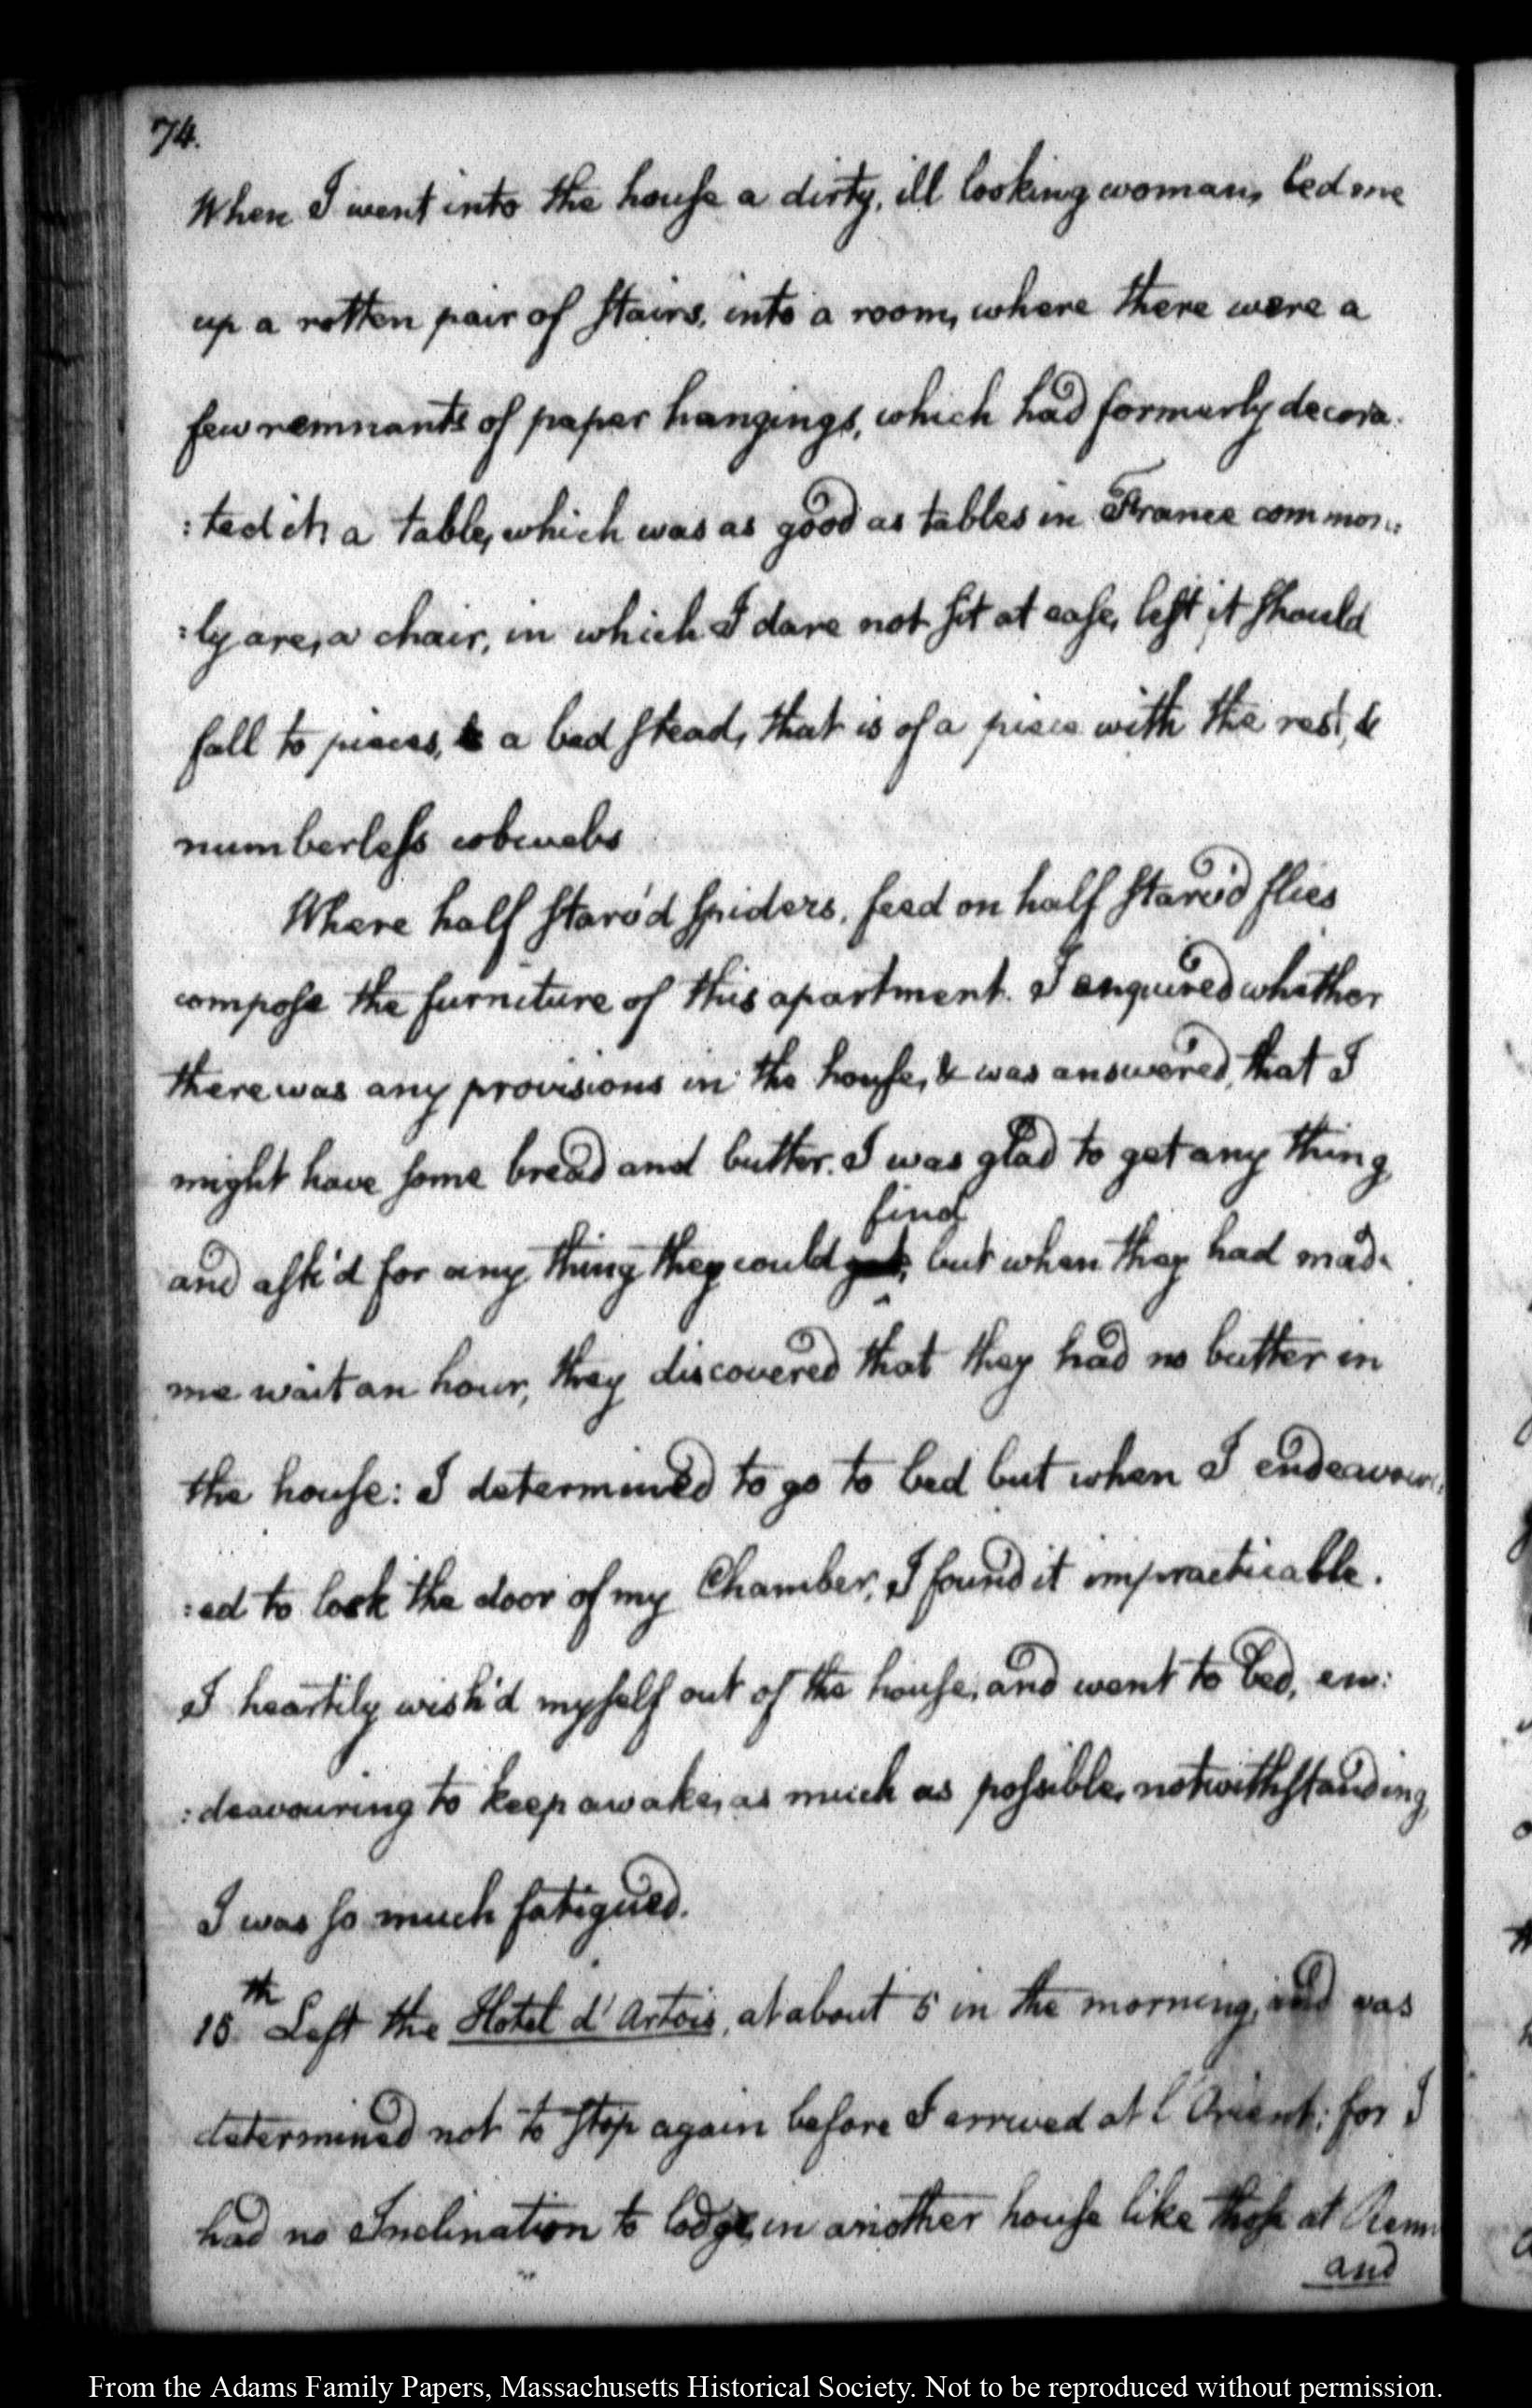 74.
When I went into the house a dirty, ill looking woman, led me
up a rotten pair of stairs, into a room, where there were a
few remnants of paper hangings, which had formerly decora:
:ted it, a table, which was as good as tables in France common:
:ly are, a chair, in which I dare not sit at ease, lest it should
fall to pieces, & a bed stead, that is of a piece with the rest, &
numberless cobwebs
Where half starv'd spiders, feed on half starv'd flies
compose the furniture of this apartment. I enquired whether
there was any provisions in the house, & was answered, that I
might have some bread and butter. I was glad to get any thing,
find
and ask'd for any thing they could get, but when they had made
me wait an hour, they discovered that they had no butter in
the house: I determined to go to bed but when I endeavour:
:ed to lock the door of my Chamber, I found it impracticable.
I heartily wish'd myself out of the house, and went to bed, en:
:deavouring to keep awake, as much as possible, notwithstanding
I was so much fatigued.
15th Left the Hotel d'Artois, at about 5 in the morning, and was
determined not to stop again before I arrived at l'Orient: for I
had no Inclination to lodge, in another house like those at
and
From the Adams Family Papers, Massachusetts Historical Society. Not to be reproduced without permission.